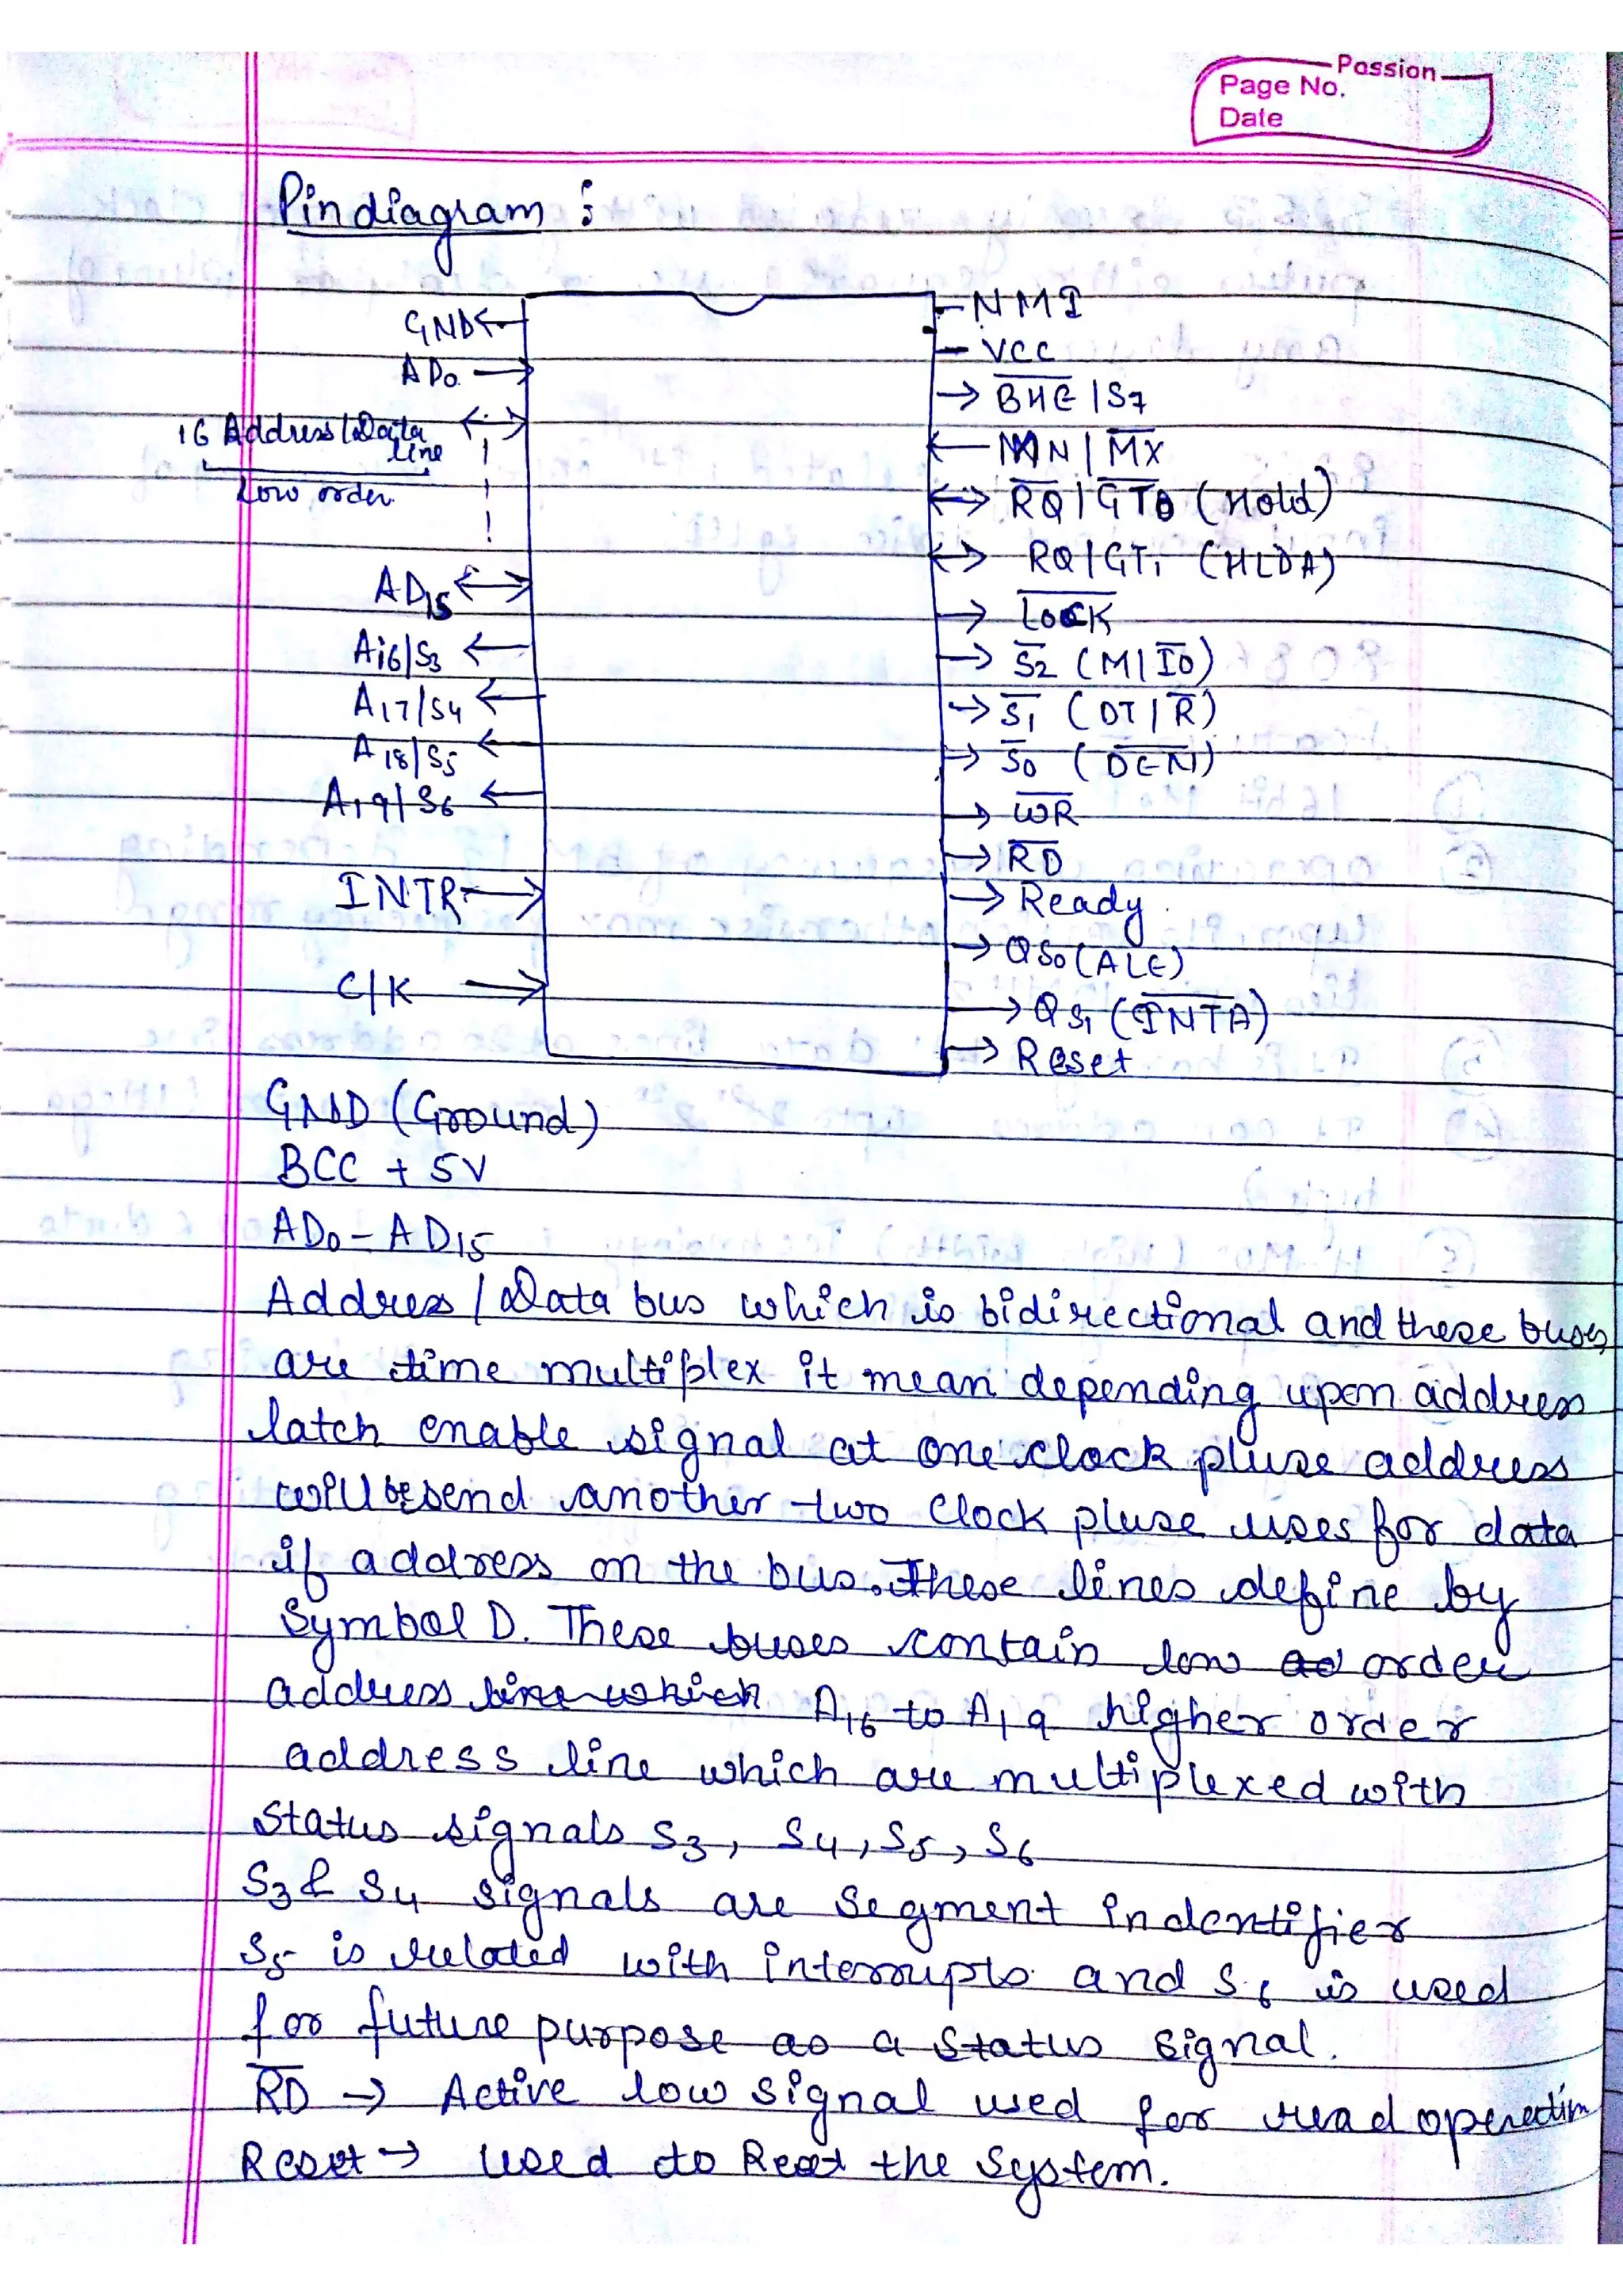 Passion
Page No.
Date
Pin diagram :
GND
AD0
16 Address/Data
line
Low order
AD15
A16/S3
A17/S4
A18/S5
A19/S6
INTR
C/K
NMI
VCC
B̅H̅E̅ /S7
MN/M̅X̅
R̅Q̅/G̅T̅0 (Hold)
RQ/GT1 (HLDA)
L̅O̅C̅K̅
S̅2 (M/I̅O̅)
S̅1 (DT/R̅)
S̅0 (D̅E̅N̅)
W̅R̅
R̅D̅
Ready
QS0 (ALE)
QS1 (I̅N̅T̅A̅)
Reset
GND (Ground)
BCC + 5V
AD0 - AD15
Address / Data bus which is bidirectional and these buses
are time multiplex it mean depending upon address
latch enable signal at one clock pluse address
will be send another two clock pluse uses for data
if address on the bus. These lines define by
Symbol D. These buses contain low ad order
address line which A16 to A19 higher order
address line which are multiplexed with
Status signals S3, S4, S5, S6
S3 & S4 signals are segment indentifier
S5 is related with interrupts and S6 is used
for future purpose as a status signal.
R̅D̅ → Active low signal used for read operation
Reset → used to Reset the System.